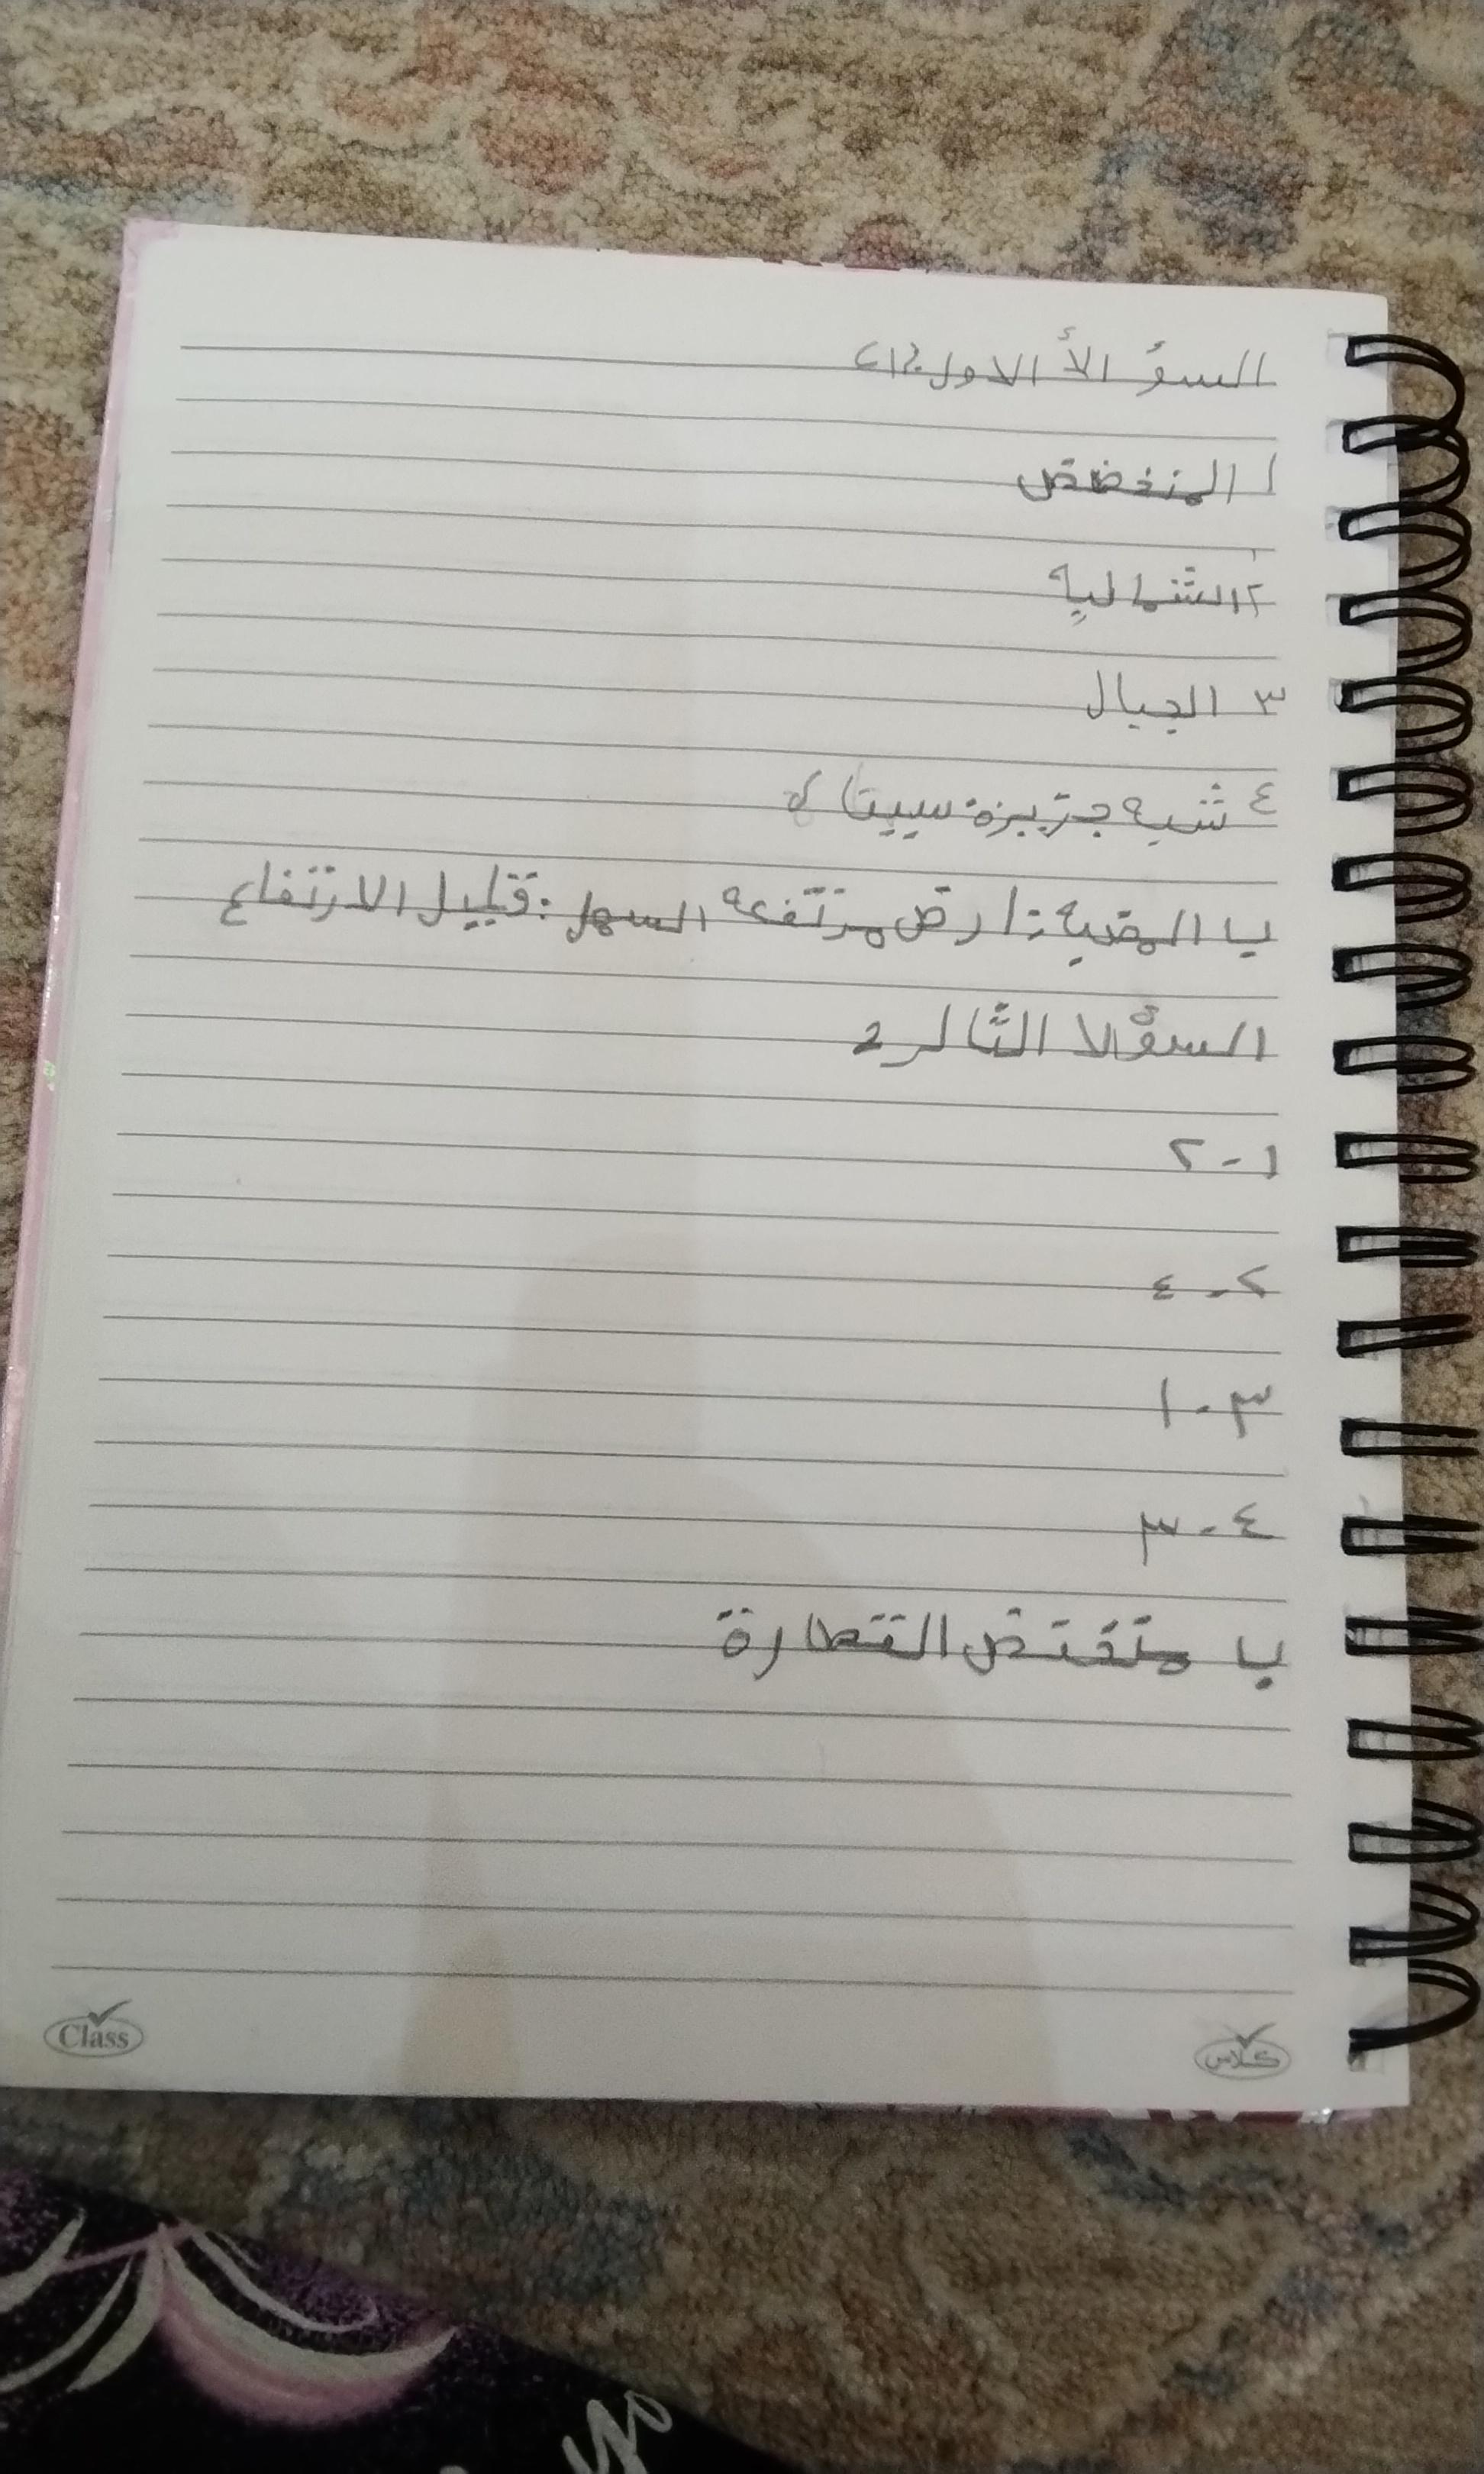 السؤ الأ الاول
١ المنخفض
٢ الشماليه
٣ الجبال
٤ شبه جزيرة سيينا
ب الهضبة: ارض مرتفعه السهل: قليل الارتفاع
السؤلا الثا
١ - ٢
٢ - ٤
٣ - ١
٤ - ٣
ب منخفض القطارة
Class كلاس